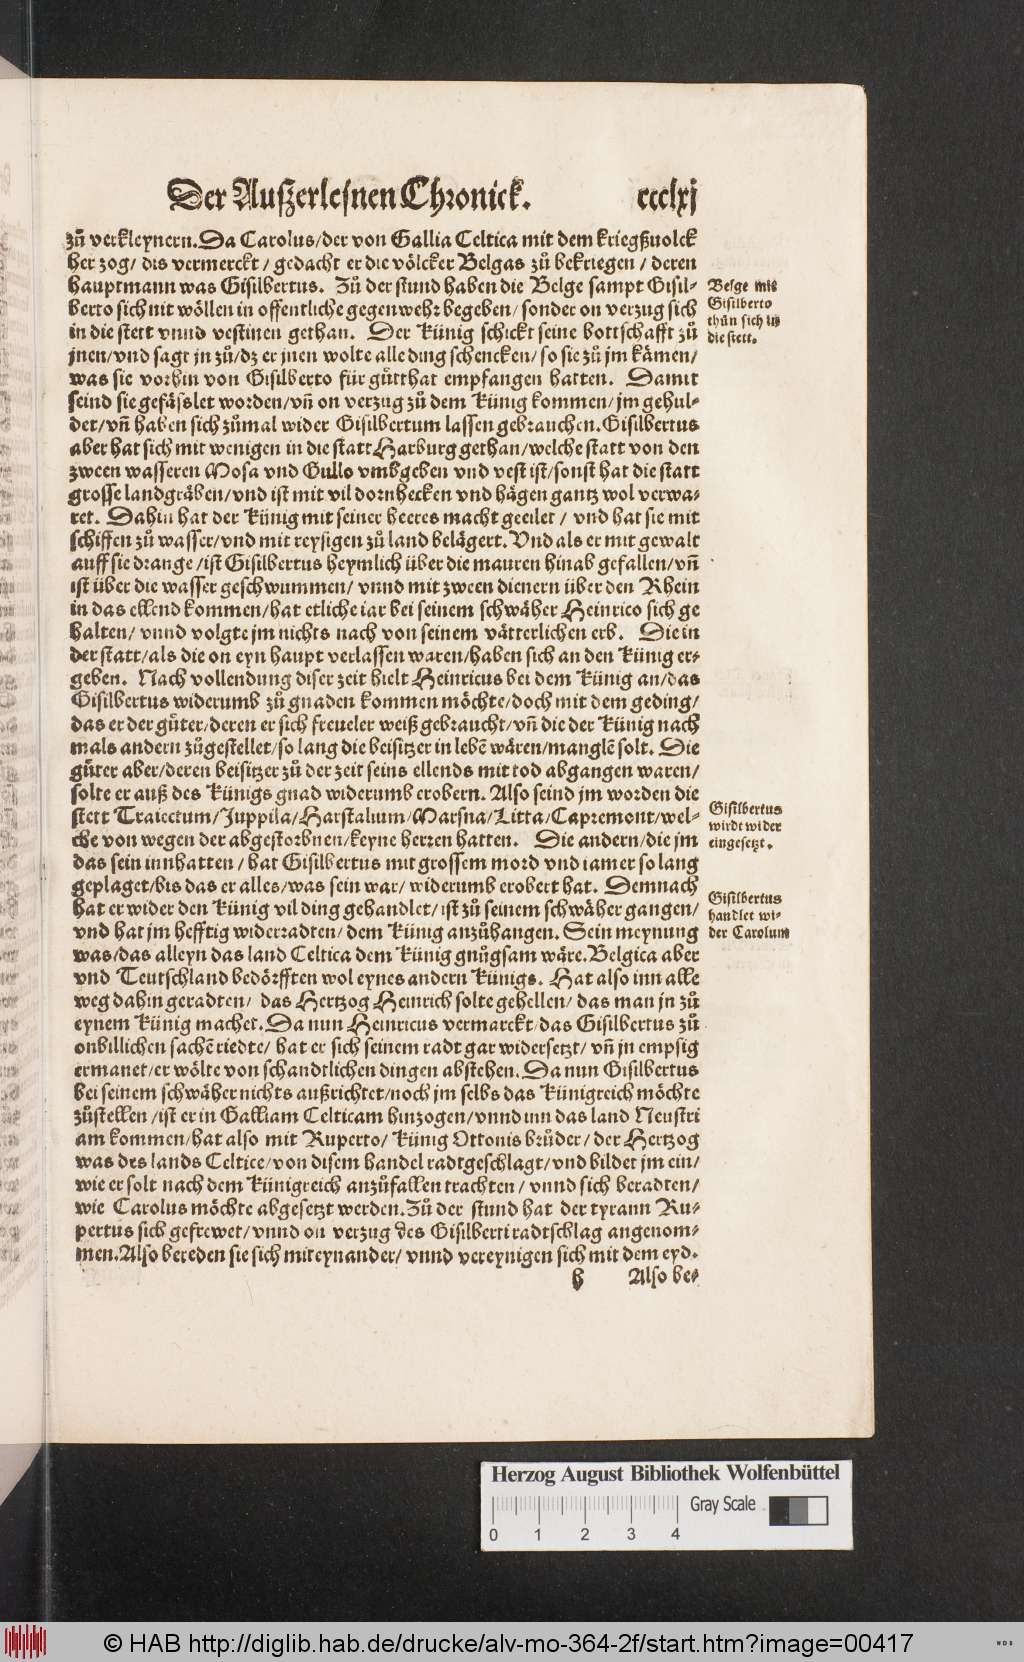 Der Außerlesnen Chronick. ccclxj
zů verkleynern. Da Carolus/der von Gallia Celtica mit dem kriegßuolck
her zog/ dis vermerckt/ gedacht er die völcker Belgas zů bekriegen/ deren
hauptmann was Gisilbertus. Zů der stund haben die Belge sampt Gisil-
berto sich nit wöllen in offentliche gegenwehr begeben/ sonder on verzug sich
in die stett vnnd vestinen gethan. Der Künig schickt seine bottschafft zů
jnen/vnd sagt jn zů/dz er jnen wolte alle ding schencken/ so sie zů jm kämen/
was sie vorhin von Gisilberto für gůtthat empfangen hatten. Damit
seind sie gefässlet worden/vñ on verzug zů dem Künig kommen/jm gehul-
det/vñ haben sich zůmal wider Gisilbertum lassen gebrauchen. Gisilbertus
aber hat sich mit wenigen in die statt Harburg gethan/welche statt von den
zween wasseren Mosa vnd Gullo vmbgeben vnd vest ist/sonst hat die statt
grosse landgräben/vnd ist mit vil dornhecken vnd hägen gantz wol verwa-
ret. Dahin hat der Künig mit seiner heeres macht geeilet/ vnd hat sie mit
schiffen zů wasser/vnd mit reysigen zů land belägert. Vnd als er mit gewalt
auff sie drange/ist Gisilbertus heymlich über die mauren hinab gefallen/vñ
ist über die wasser geschwummen/ vnnd mit zween dienern über den Rhein
in das ellend kommen/hat etliche iar bei seinem schwäher Heinrico sich ge
halten/ vnnd volgte jm nichts nach von seinem vätterlichen erb. Die in
der statt/als die on eyn haupt verlassen waren/haben sich an den Künig er-
geben. Nach vollendung diser zeit hielt Heinricus bei dem Künig an/das
Gisilbertus widerumb zů gnaden kommen möchte/doch mit dem geding/
das er der gůter/deren er sich freueler weiß gebraucht/vñ die der Künig nach
mals andern zůgestellet/so lang die beisitzer in lebē wären/manglē solt. Die
gůter aber/deren beisitzer zů der zeit seins ellends mit tod abgangen waren/
solte er auß des Künigs gnad widerumb erobern. Also seind jm worden die
stett Traiectum/Juppila/Harstalium/Marsna/Litta/Capremont/wel-
che von wegen der abgestorbnen/keyne herren hatten. Die andern/die jm
das sein innhatten/ hat Gisilbertus mit grossem mord vnd iamer so lang
geplaget/bis das er alles/was sein war/ widerumb erobert hat. Demnach
hat er wider den Künig vil ding gehandlet/ist zů seinem schwäher gangen/
vnd hat jm hefftig widerradten/ dem Künig anzůhangen. Sein meynung
was/das alleyn das land Celtica dem Künig gnůgsam wäre. Belgica aber
vnd Teutschland bedörfften wol eynes andern Künigs. Hat also inn alle
weg dahin geradten/ das Hertzog Heinrich solte gehellen/das man jn zů
eynem Künig machet. Da nun Heinricus vermarckt/das Gisilbertus zů
onbillichen sachē riedte/ hat er sich seinem radt gar widersetzt/ vñ jn empsig
ermanet/er wölte von schandtlichen dingen abstehen. Da nun Gisilbertus
bei seinem schwäher nichts außrichtet/noch jm selbs das Künigreich möchte
zůstellen/ist er in Galliam Celticam hinzogen/vnnd inn das land Neustri
am kommen/hat also mit Ruperto/ Künig Ottonis brůder/ der Hertzog
was des lands Celtice/von disem handel radtgeschlagt/vnd bildet jm ein/
wie er solt nach dem Künigreich anzůfallen trachten/ vnnd sich beradten/
wie Carolus möchte abgesetzt werden. Zů der stund hat der tyrann Ru-
pertus sich gefrewet/vnnd on verzug des Gisilberti radtschlag angenom-
men. Also bereden sie sich miteynander/ vnnd vereynigen sich mit dem eyd.
h Also be-
Belge mit
Gisilberto
thůn sich in
die stett.
Gisilbertus
wirdt wider
eingesetzt.
Gisilbertus
handlet wi-
der Carolum
Herzog August Bibliothek Wolfenbüttel
Gray Scale
0 1 2 3 4
© HAB http://diglib.hab.de/drucke/alv-mo-364-2f/start.htm?image=00417